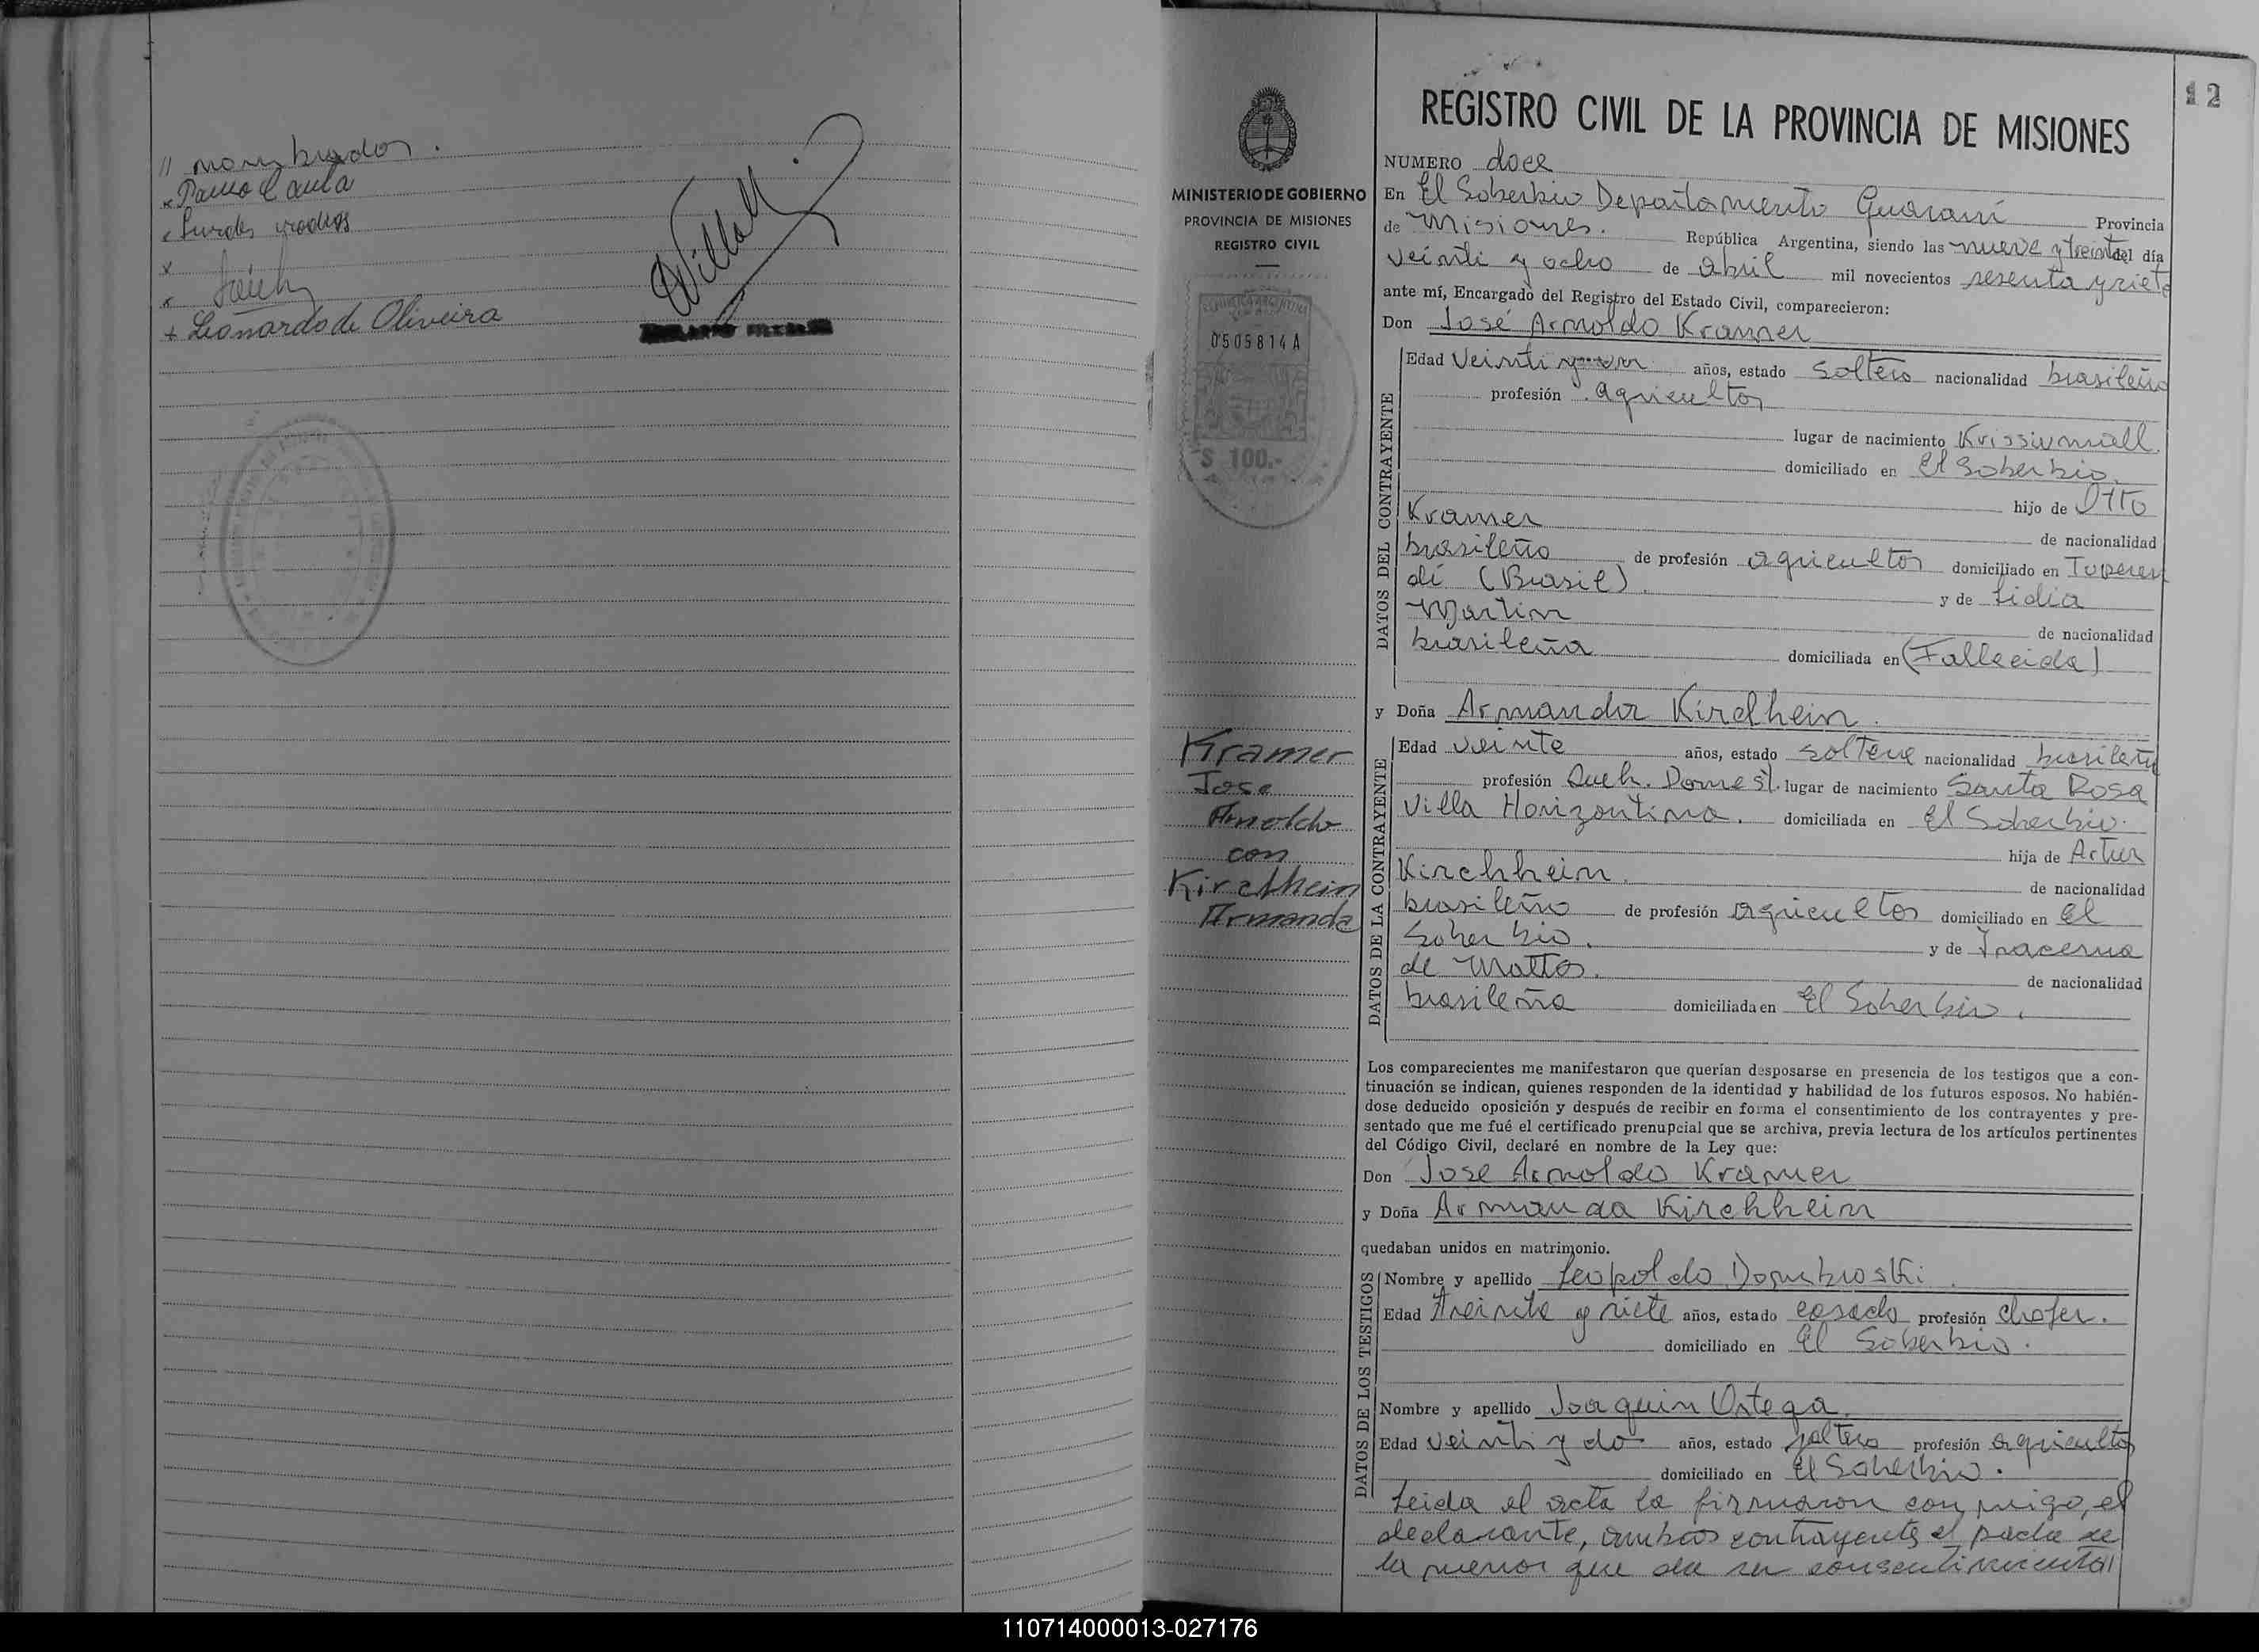 // nombrados.
x
x
+ Leonardo de Oliveira
12
MINISTERIO DE GOBIERNO
PROVINCIA DE MISIONES
REGISTRO CIVIL
0505814 A
$ 100.-
Kramer
Jose
Arnoldo
con
Kirchhein
Armanda
REGISTRO CIVIL DE LA PROVINCIA DE MISIONES
NUMERO doce
En El Soberbio Departamento Guaraní Provincia
de Misiones. República Argentina, siendo las nueve y treinta del día
veinti y ocho de abril mil novecientos sesenta y siete
ante mí, Encargado del Registro del Estado Civil, comparecieron:
Don José Arnoldo Kramer
DATOS DEL CONTRAYENTE
Edad Veinti y un años, estado soltero nacionalidad brasileño
profesión agricultor
lugar de nacimiento Krissiumall.
domiciliado en El Soberbio.
hijo de Otto
Kramer de nacionalidad
brasileño de profesión agricultor domiciliado en Tuperen
di (Brasil). y de Lidia
Martin de nacionalidad
brasileña domiciliada en (Fallecida)
y Doña Armanda Kirchhein.
DATOS DE LA CONTRAYENTE
Edad veinte años, estado soltera nacionalidad brasileña
profesión Queh. Domest. lugar de nacimiento Santa Rosa
Villa Horizontina. domiciliada en El Soberbio.
hija de Artur
Kirchhein. de nacionalidad
brasileño de profesión agricultor domiciliado en El
Soberbio. y de Iracema
de Mattos. de nacionalidad
brasileña domiciliada en El Soberbio.
Los comparecientes me manifestaron que querían desposarse en presencia de los testigos que a con-
tinuación se indican, quienes responden de la identidad y habilidad de los futuros esposos. No habién-
dose deducido oposición y después de recibir en forma el consentimiento de los contrayentes y pre-
sentado que me fué el certificado prenupcial que se archiva, previa lectura de los artículos pertinentes
del Código Civil, declaré en nombre de la Ley que:
Don Jose Arnoldo Kramer
y Doña Armanda Kirchhein
quedaban unidos en matrimonio.
DATOS DE LOS TESTIGOS
Nombre y apellido Leopoldo Dombroski.
Edad treinta y siete años, estado casado profesión chofer.
domiciliado en El Soberbio.
Nombre y apellido Joaquin Ortega.
Edad veinti y do años, estado soltero profesión agricultor
domiciliado en El Soberbio.
Leida el acta la firmaron conmigo, el
declarante, ambos contrayentes el padre de
la menor que da su consentimiento//
110714000013-027176